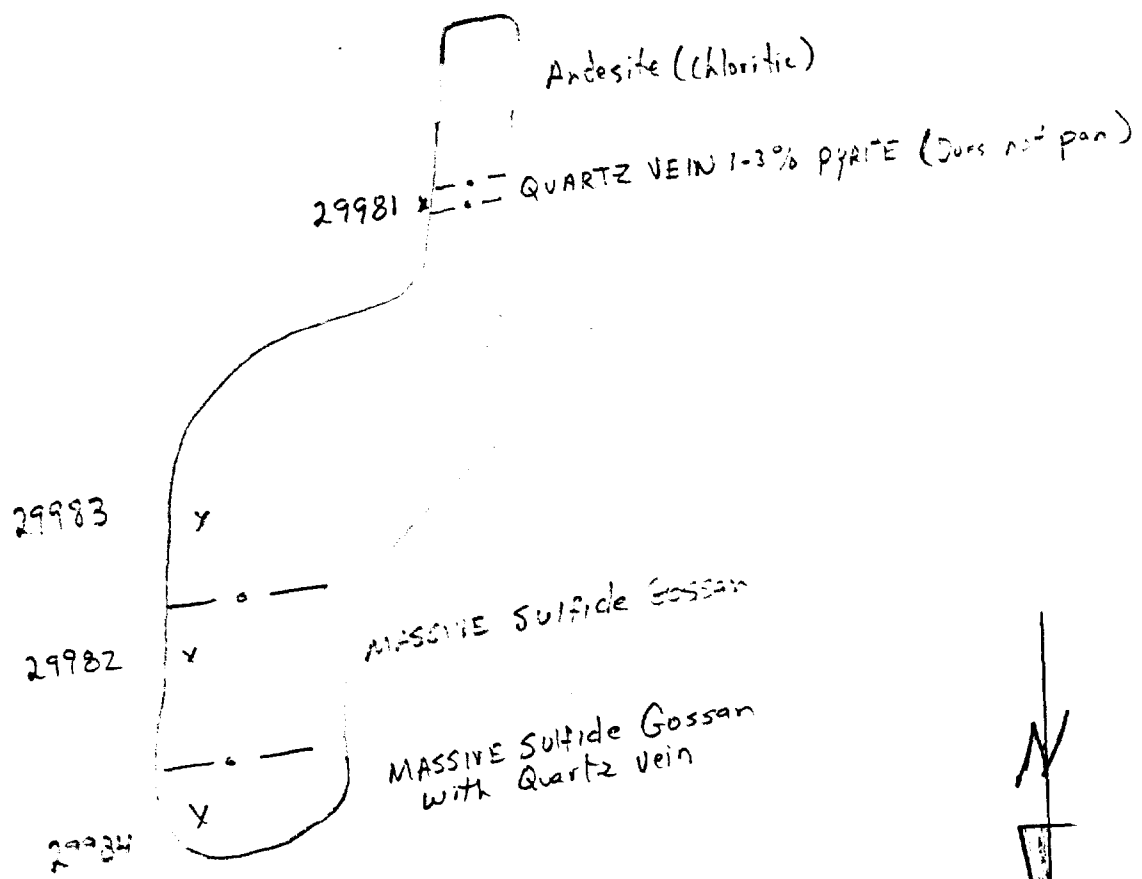 Andesite (Chloritic)
QUARTZ VEIN 1-3% PYRITE (Does not pan)
29981
29983
MASSIVE Sulfide Gossan
29982
MASSIVE Sulfide Gossan
with Quartz vein
N